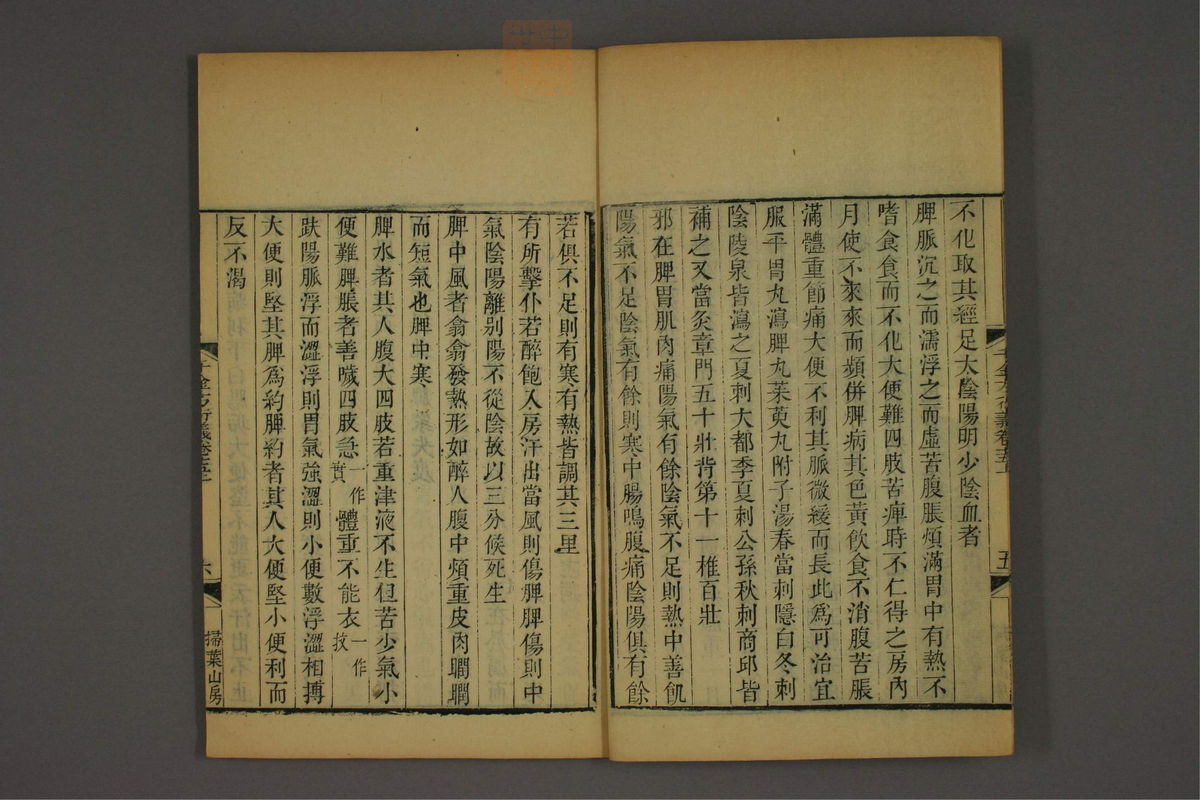 不化取其經足太陰陽明少陰血者
脾脈沉之而濡浮之而虛苦腹脹煩滿胃中有熱不
嗜食食而不化大便難四肢苦痺時不仁得之房內
月使不來來而頻併脾病其色黃飲食不消腹苦脹
滿體重節痛大便不利其脈微緩而長此為可治宜
服平胃丸瀉脾丸茱萸丸附子湯春當刺隱白冬刺
陰陵泉皆瀉之夏刺大都季夏刺公孫秋刺商邱皆
補之又當灸章門五十壯背第十一椎百壯
邪在脾胃肌肉痛陽氣有餘陰氣不足則熱中善飢
陽氣不足陰氣有餘則寒中腸鳴腹痛陰陽俱有餘
五
若俱不足則有寒有熱皆調其三里
有所擊仆若醉飽入房汗出當風則傷脾脾傷則中
氣陰陽離別陽不從陰故以三分候死生
脾中風者翕翕發熱形如醉人腹中煩重皮肉瞤瞤
而短氣也脾中寒
脾水者其人腹大四肢若重津液不生但苦少氣小
便難脾脹者善噦四肢急一作實體重不能衣一作扠
趺陽脈浮而澀浮則胃氣強澀則小便數浮澀相搏
大便則堅其脾為約脾約者其人大便堅小便利而
反不渴
六
掃葉山房